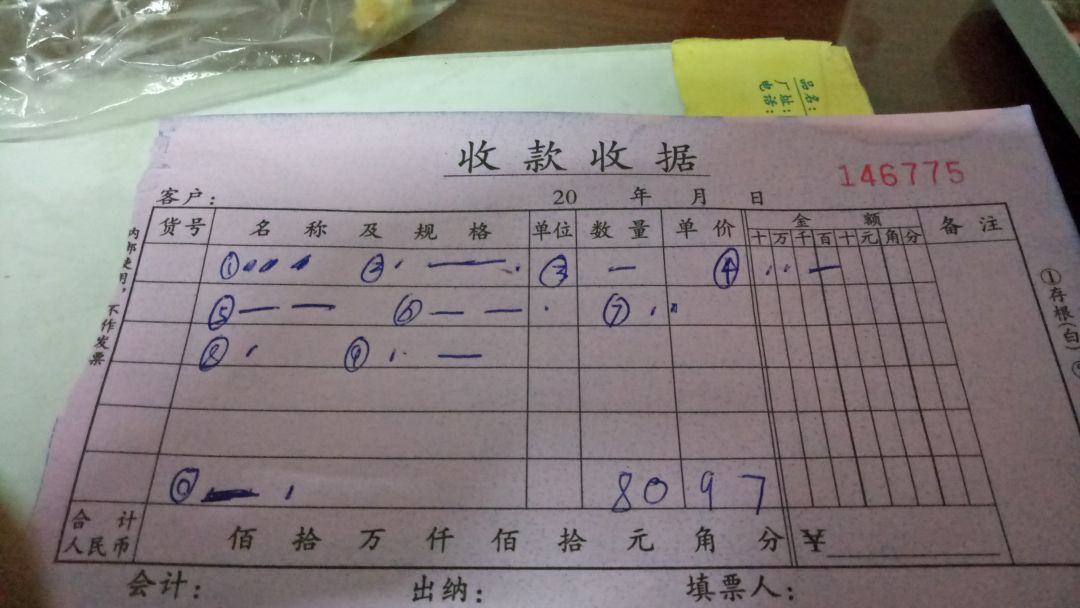 品名:
厂址:
电话:
收款收据
146775
客户: 20 年 月 日
货号 名称及规格 单位 数量 单价 金额 备注
十 万 千 百 十 元 角 分
① ② ③ ④
⑤ ⑥ ⑦
⑧ ⑨
⓪ 8097
合计人民币 佰 拾 万 仟 佰 拾 元 角 分 ¥
会计: 出纳: 填票人:
内部使用,不作发票
①存根(白)